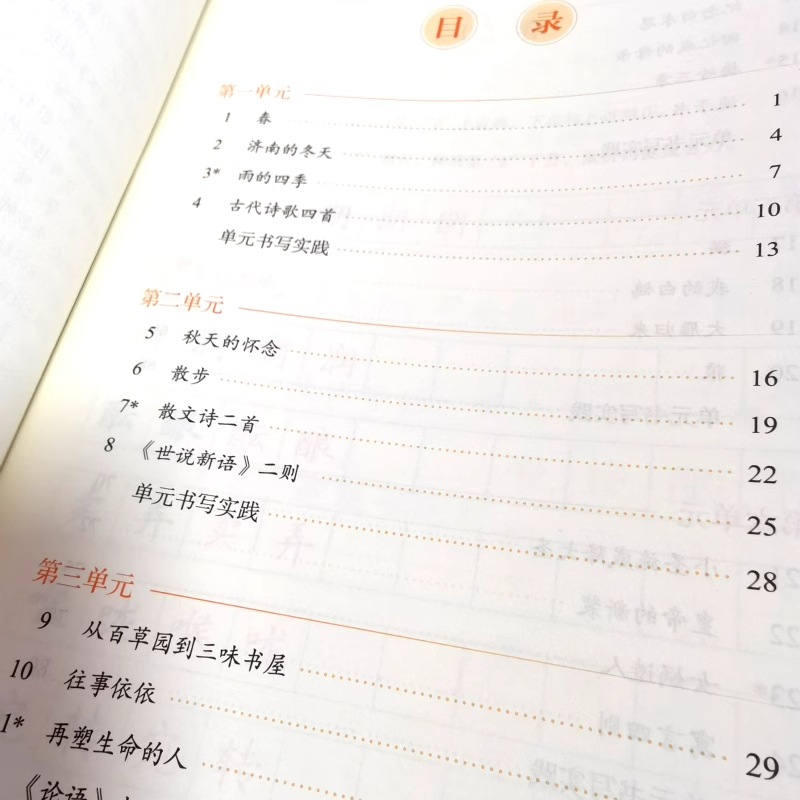 目录
第一单元
1 春 1
2 济南的冬天 4
3* 雨的四季 7
4 古代诗歌四首 10
单元书写实践 13
第二单元
5 秋天的怀念 16
6 散步 19
7* 散文诗二首 22
8 《世说新语》二则 25
单元书写实践 28
第三单元
9 从百草园到三味书屋 29
10 往事依依
1* 再塑生命的人
《论语》